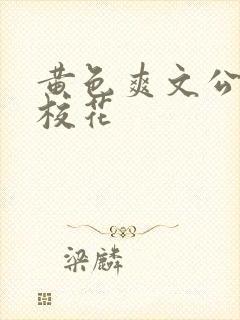 黄色爽文公
校花
梁麟